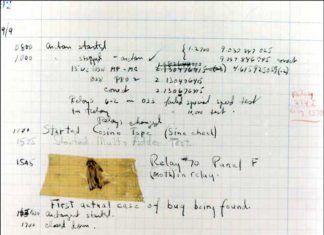 92
9/9
0800 Antan started
1000 " stopped - antan ✓ { 1.2700 9.037 847 025
9.037 846 995 correct
13" MP - MC 2.130476415 4.615925059 (-2)
033 PRO 2 2.130476415
correct 2.130676415
Relays 6-2 in 033 failed special speed test
in Relay " test.
Relays changed
1100 Started Cosine Tape (Sine check)
1525 Started Multi Adder Test.
1545 Relay #70 Panel F
(moth) in relay.
First actual case of bug being found.
antangent started.
1700 closed down.